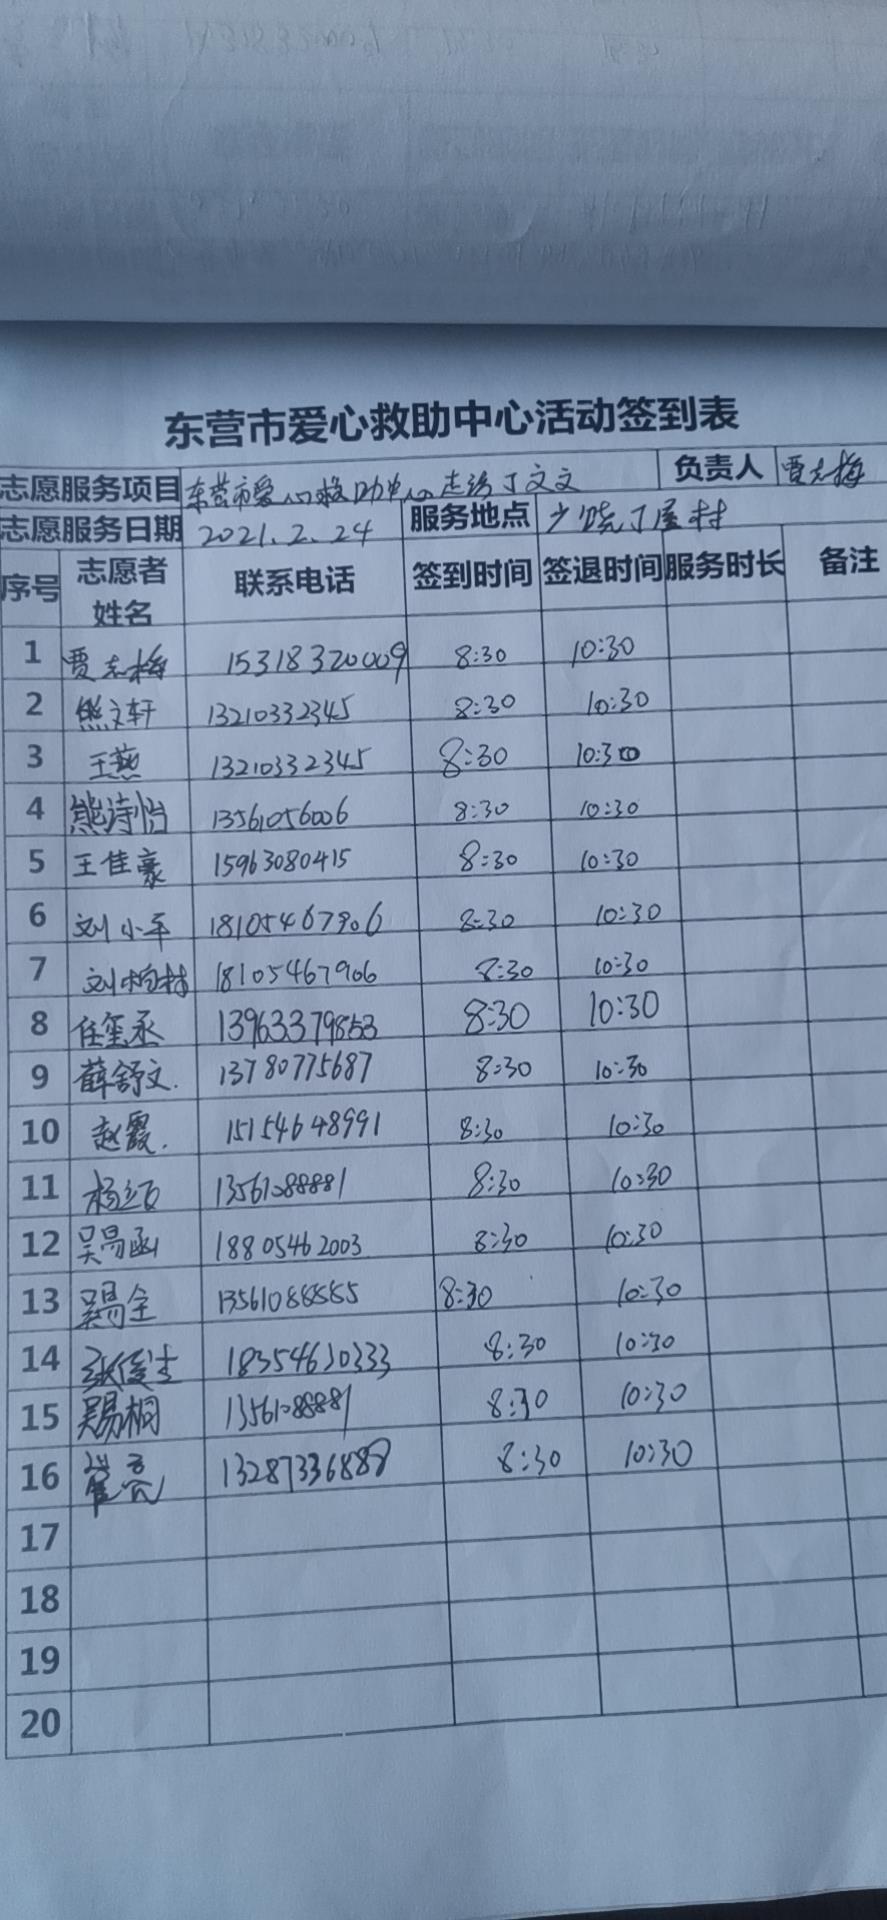 东营市爱心救助中心活动签到表
志愿服务项目 东营市爱心救助中心走访丁文文 负责人 贾志梅
志愿服务日期 2021.2.24 服务地点 丁屋村
序号 志愿者姓名 联系电话 签到时间 签退时间 服务时长 备注
1 贾志梅 15318320009 8:30 10:30
2 熊文轩 13210332345 8:30 10:30
3 王燕 13210332345 8:30 10:30
4 熊诗怡 13561056006 8:30 10:30
5 王佳豪 15963080415 8:30 10:30
6 刘小军 18105467906 8:30 10:30
7 刘柏林 18105467906 8:30 10:30
8 任玺丞 13963379853 8:30 10:30
9 薛舒文. 13780775687 8:30 10:30
10 赵霞. 15154648991 8:30 10:30
11 杨 13561088881 8:30 10:30
12 吴易函 18805462003 8:30 10:30
13 8:30 10:30
14 张 18354630333 8:30 10:30
15 13561088881 8:30 10:30
16 亮 13287336888 8:30 10:30
17
18
19
20